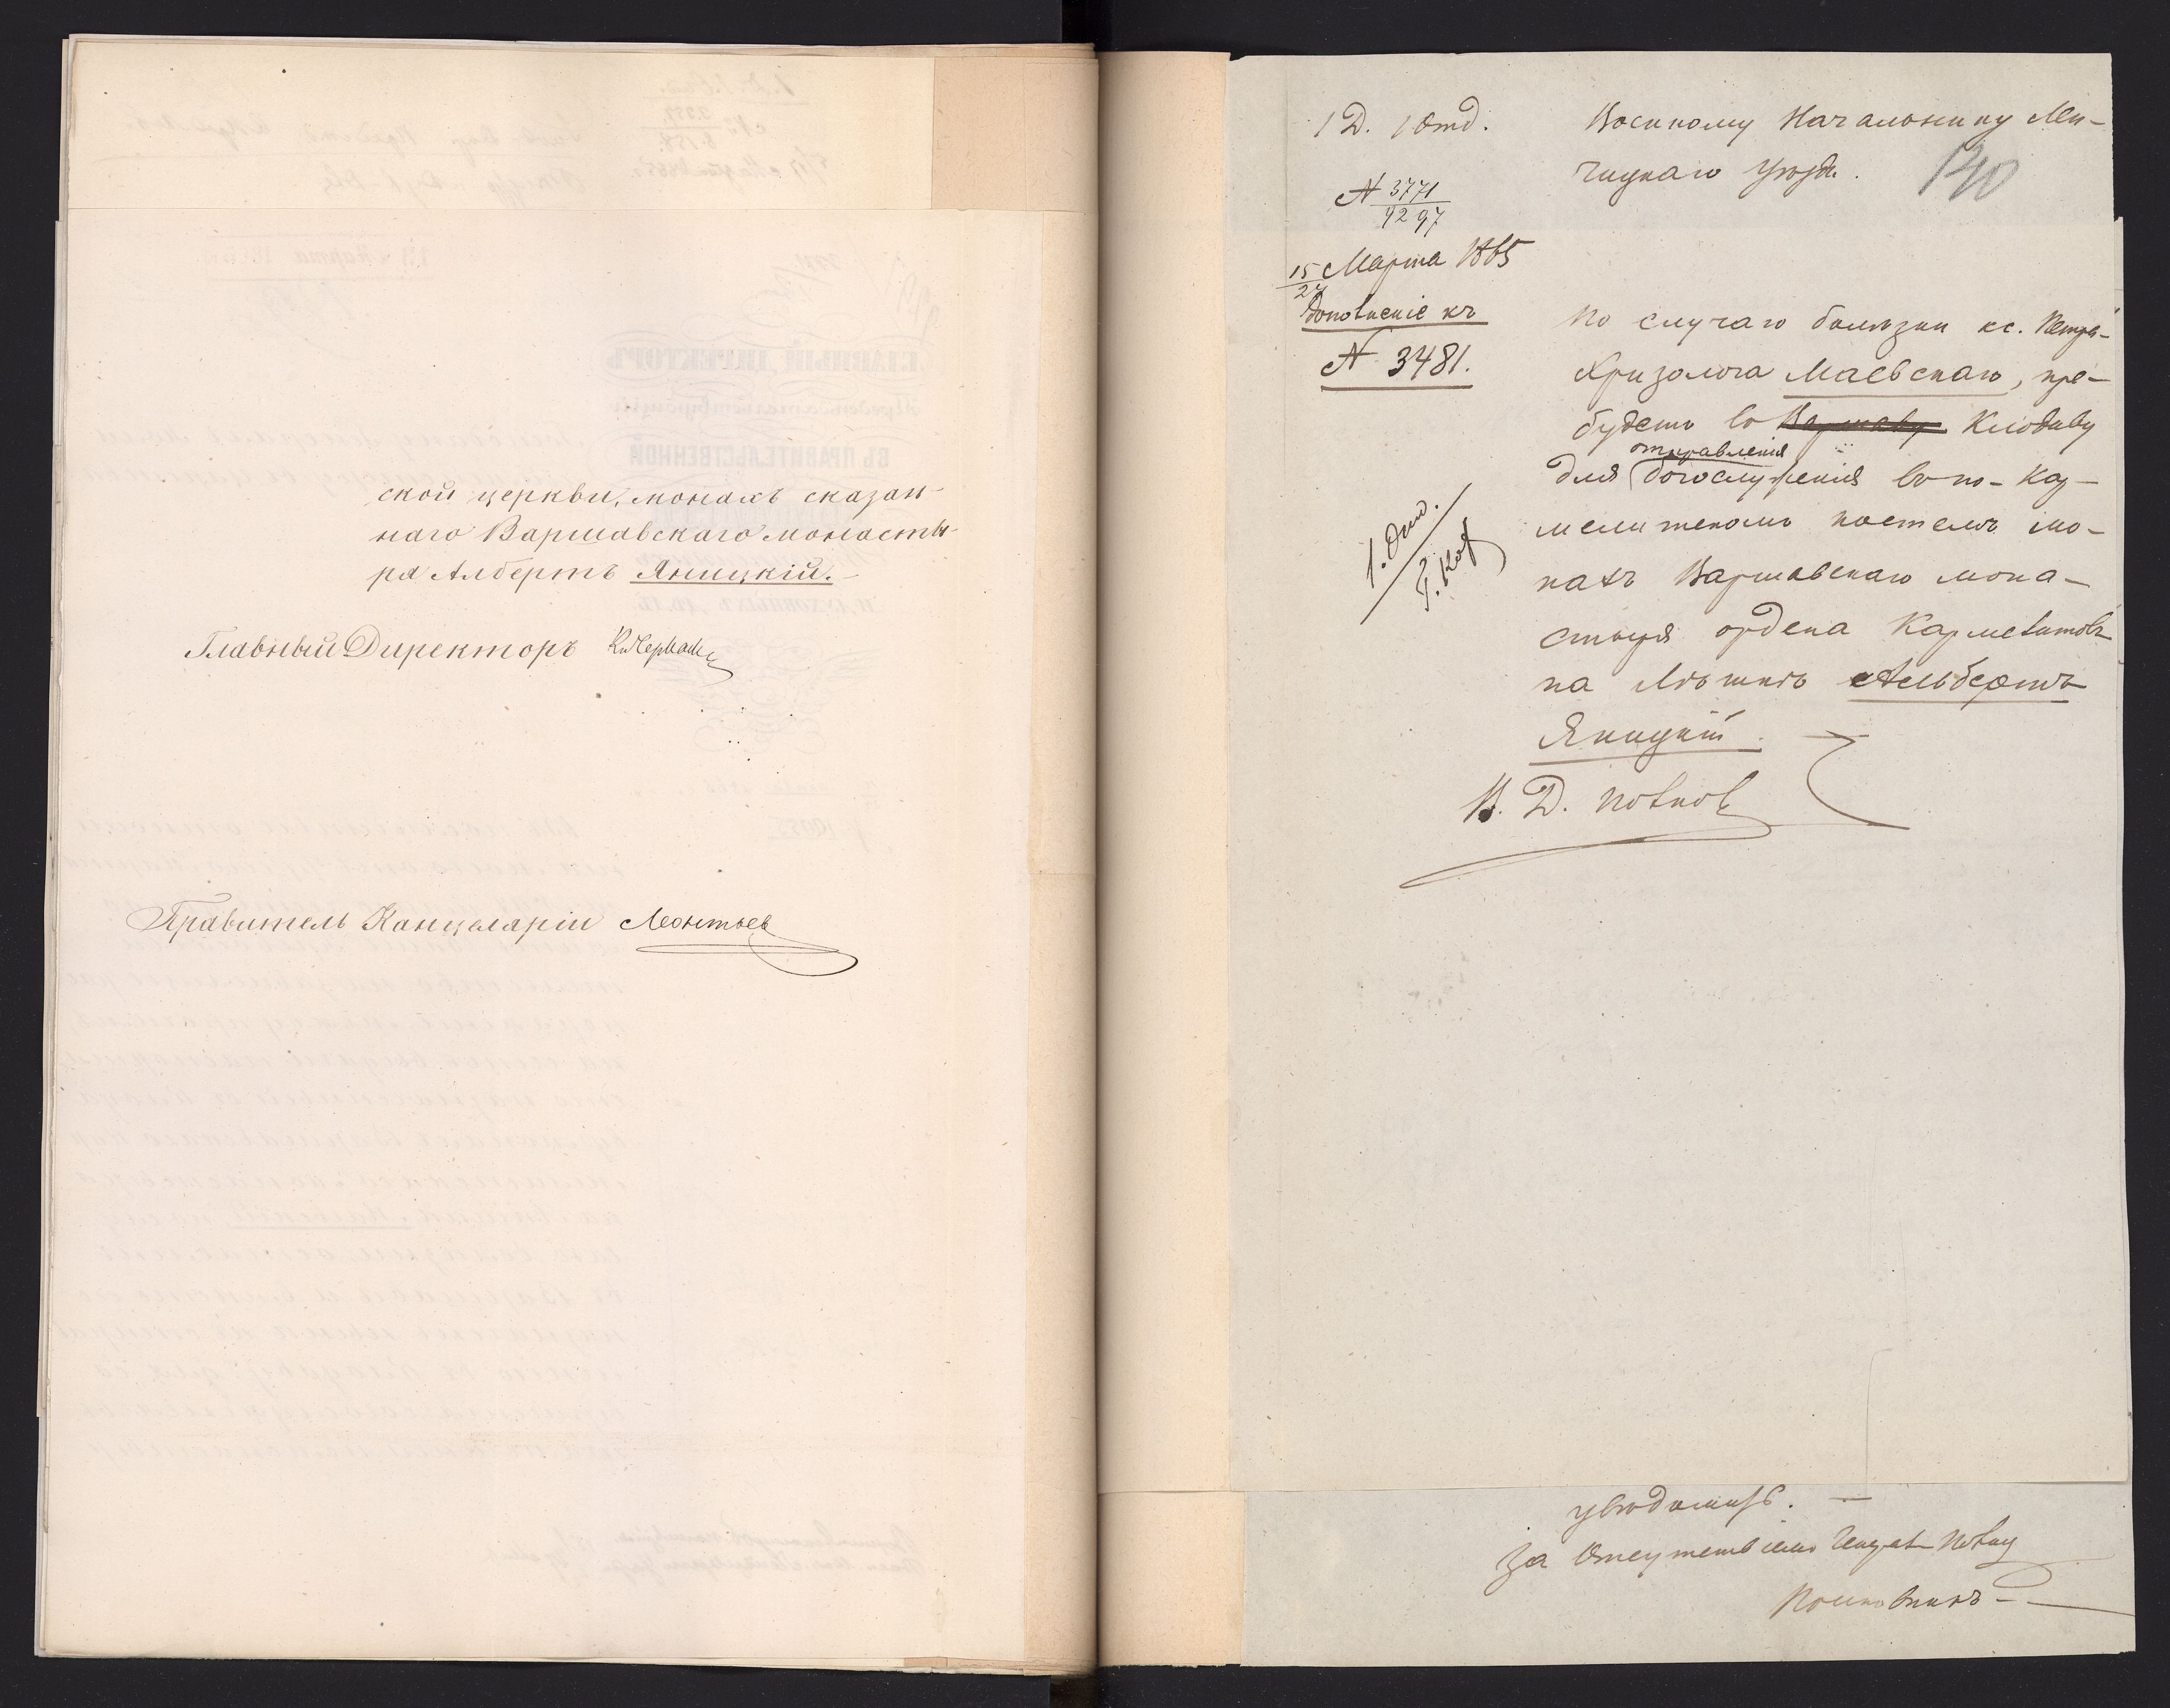 ской церкви, монахъ сказан-
наго Варшавскаго монасты-
ря Албертъ Яницкій.
Главный Директоръ К. Черкас
Правитель Канцеляріи Леонтьев
1 Д. 1 Отд.
№ 3771/9297
15/27 Марта 1865
Дополненіе къ
№ 3481.
Военному Начальнику Лен-
чицкаго уѣзда.
140
По случаю болѣзни кс. Петра-
Хризолога Маевскаго, пре-
будетъ въ Варшаву Клодаву
отправленія
для богослуженія въ по-Кар-
мелитскомъ костелѣ мо-
нахъ Варшавскаго мона-
стыря ордена Кармелитовъ
на Лѣшнѣ Альбертъ
Яницкій.
В. Д. Полков
увѣдомить. —
За Отсутствіемъ
Полковникъ